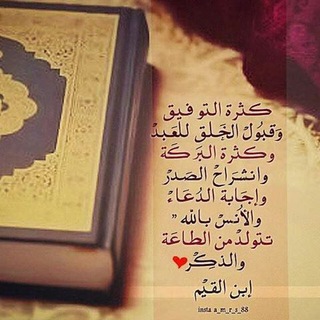 كثرة التوفيق
وَقبُولْ الخَلق للعَبدْ
وكثرة البَركَة
وانشرَاحْ الصَدرْ
وإجَابة الدُعَاءْ
والأُنسْ بالله "
تتولدْ من الطاعَة
والذِكِرْ
إبن القيْم
insta a_m_r_s_88